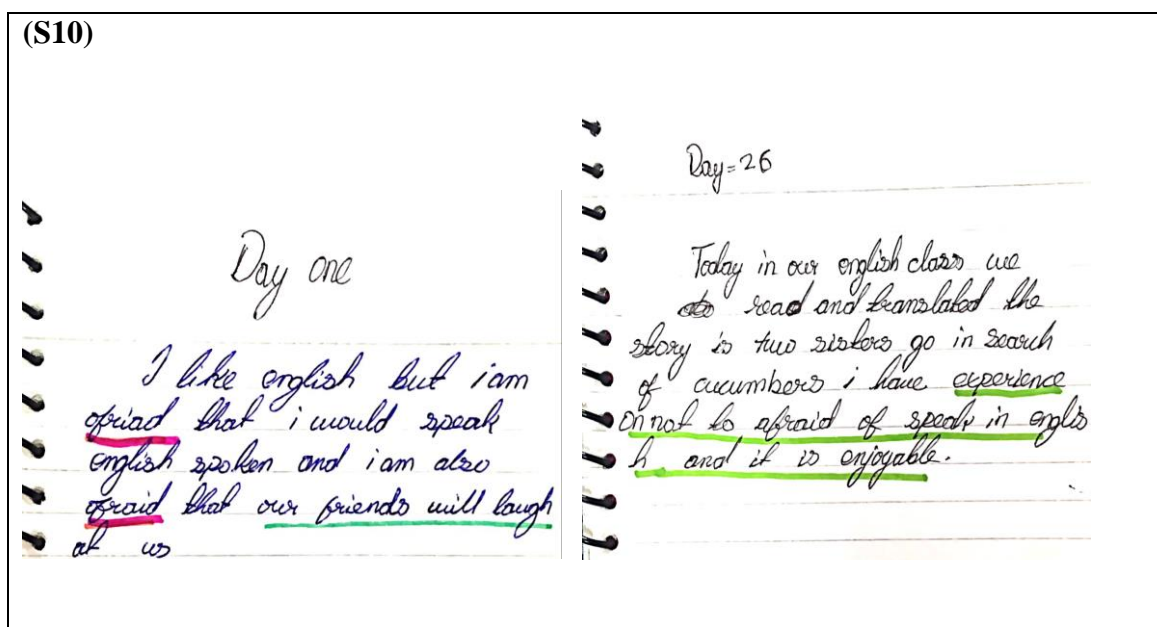 (S10)
Day one
I like english but i am
afriad that i would speak
english spoken and i am also
afraid that our friends will laugh
at us
Day = 26
Today in our english class we
read and translated the
story is two sisters go in search
of cucumbers i have experience
on not to afraid of speak in englis
h and it is enjoyable.